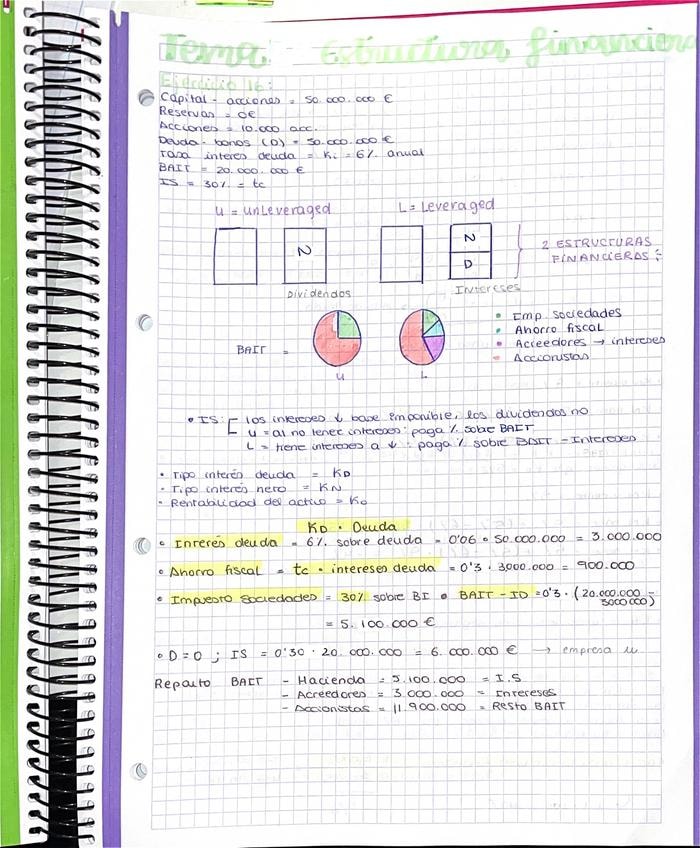 Tema: Estructura financiera
Ejercicio 16:
Capital - acciones = 50.000.000 €
Reservas = 0€
Acciones = 10.000 acc.
Deuda - bonos (D) = 50.000.000 €
Tasa interes deuda = Ki = 6% anual
BAIT = 20.000.000 €
IS = 30% = tc
U = unLeveraged L = Leveraged
N N
D
2 ESTRUCTURAS
FINANCIERAS
Dividendos Intereses
BAIT =
U L
• Emp. Sociedades
• Ahorro fiscal
• Acreedores → intereses
• Accionistas
• IS: [ los intereses ↓ base imponible, los dividendos no
U = al no tener intereses: paga % sobe BAIT
L = tiene intereses a ↓ : paga % sobre BAIT - Intereses
• Tipo interés deuda = KD
• Tipo interés neto = KN
• Rentabilidad del activo = Ko
KD • Deuda
• Interés deuda = 6% sobre deuda = 0'06 • 50.000.000 = 3.000.000
• Ahorro fiscal = tc • intereses deuda = 0'3 • 3000.000 = 900.000
• Impuesto Sociedades = 30% sobre BI • BAIT - ID = 0'3 • (20.000.000 -
3000000)
= 5.100.000 €
• D = 0 ; IS = 0'30 · 20.000.000 = 6.000.000 € → empresa u
Reparto BAIT - Hacienda = 5.100.000 = I.S
- Acreedores = 3.000.000 = Intereses
- Accionistas = 11.900.000 = Resto BAIT